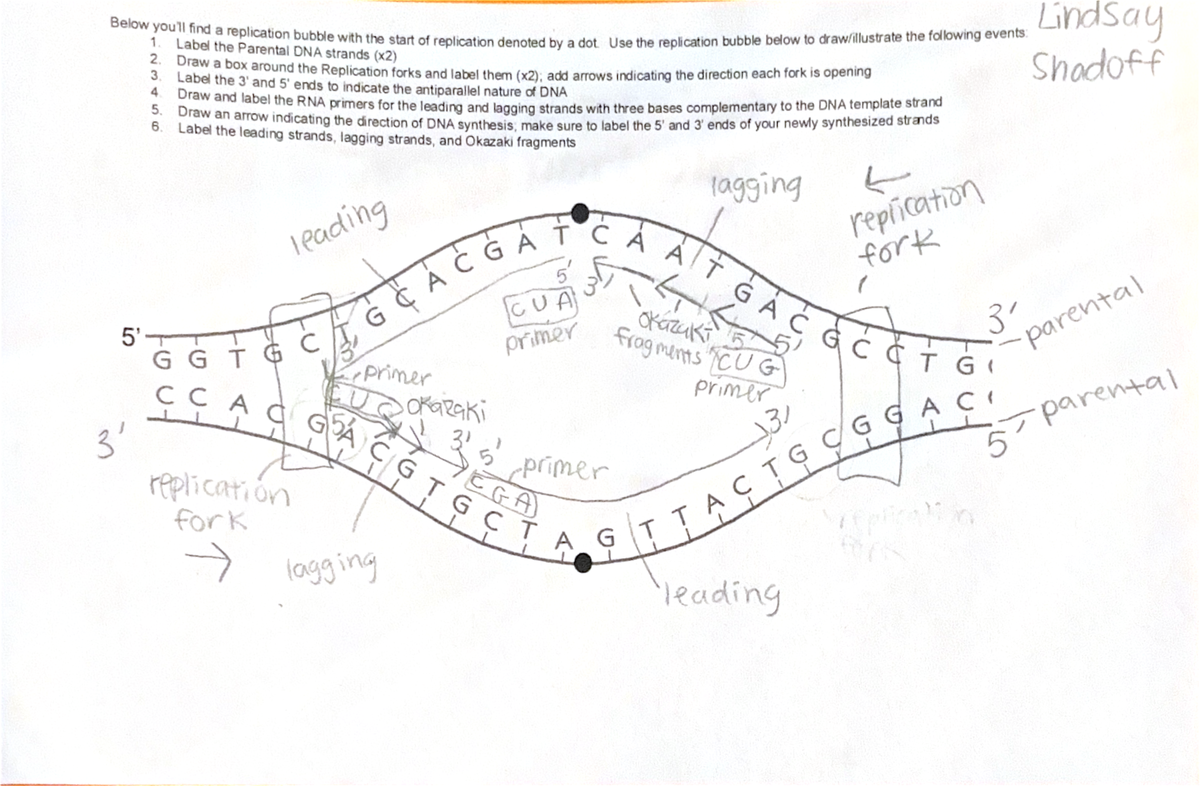 Lindsay
Shadoff
Below you'll find a replication bubble with the start of replication denoted by a dot. Use the replication bubble below to draw/illustrate the following events:
1. Label the Parental DNA strands (x2)
2. Draw a box around the Replication forks and label them (x2); add arrows indicating the direction each fork is opening
3. Label the 3' and 5' ends to indicate the antiparallel nature of DNA
4. Draw and label the RNA primers for the leading and lagging strands with three bases complementary to the DNA template strand
5. Draw an arrow indicating the direction of DNA synthesis; make sure to label the 5' and 3' ends of your newly synthesized strands
6. Label the leading strands, lagging strands, and Okazaki fragments
leading
lagging
replication
fork
5'
G G T G C T G C A C G A T C A A T G A C G C C T G
3'
parental
3'
5'
C U A
primer
3'
Okazaki
fragments
5'
5'
C U G
primer
primer
Okazaki
5'
3'
C C A C G A C G T G C T A G T T A C T G C G G A C
3'
5'
parental
5'
primer
C G A
3'
replication
fork
lagging
leading
replication
fork